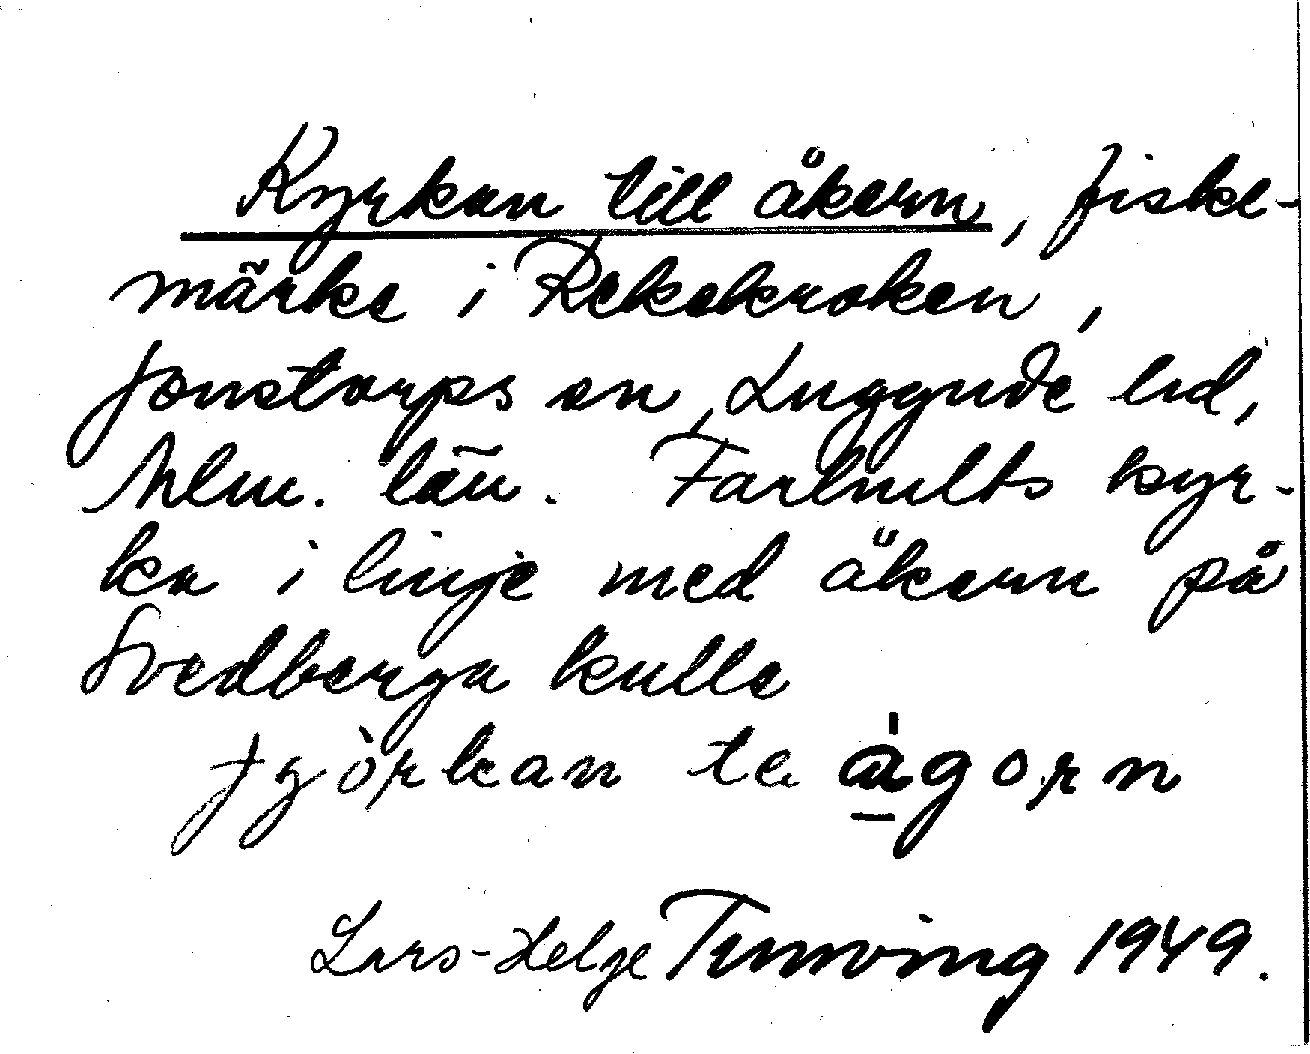 Kyrkan till åkern, fiske-
märke i Rekekroken,
Jonstorps sn, Luggude hd,
Mlm. län. Farhults kyr-
ka i linje med åkern på
Svedberga kulle
tjörkan te ågorn
Lars-Helge Tunving 1949.